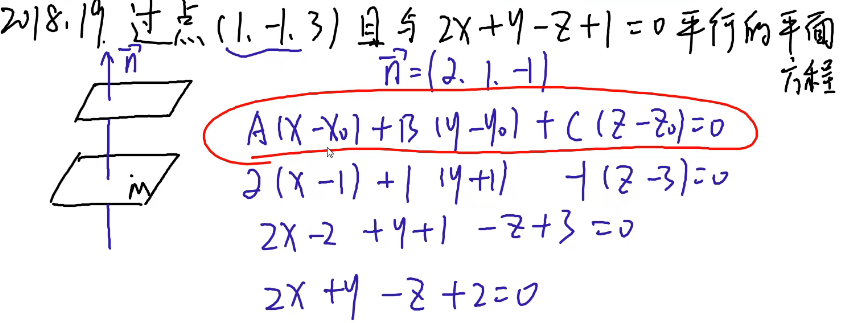 2018.19. 过点(1.-1.3)且与 2x+y-z+1=0 平行的平面
方程
n⃗
n⃗=(2.1.-1)
A(x-x₀)+B(y-y₀)+C(z-z₀)=0
2(x-1)+1(y+1) -1(z-3)=0
2x-2 +y+1 -z+3=0
2x+y-z+2=0